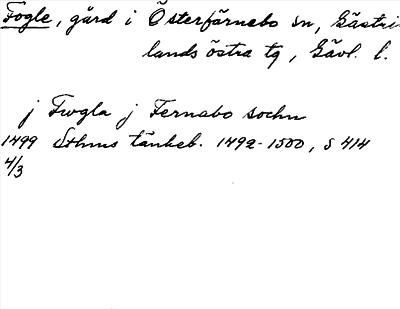 Fogle, gård i Österfärnebo sn, Gästrik
lands östra tg, Gävl. l.
j Fwgla j Fernabo sochn
1499 Sthms tänkeb. 1492-1500, s 414
4/3